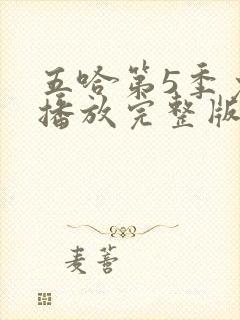 五哈第5季
播放完整版
麦蒼